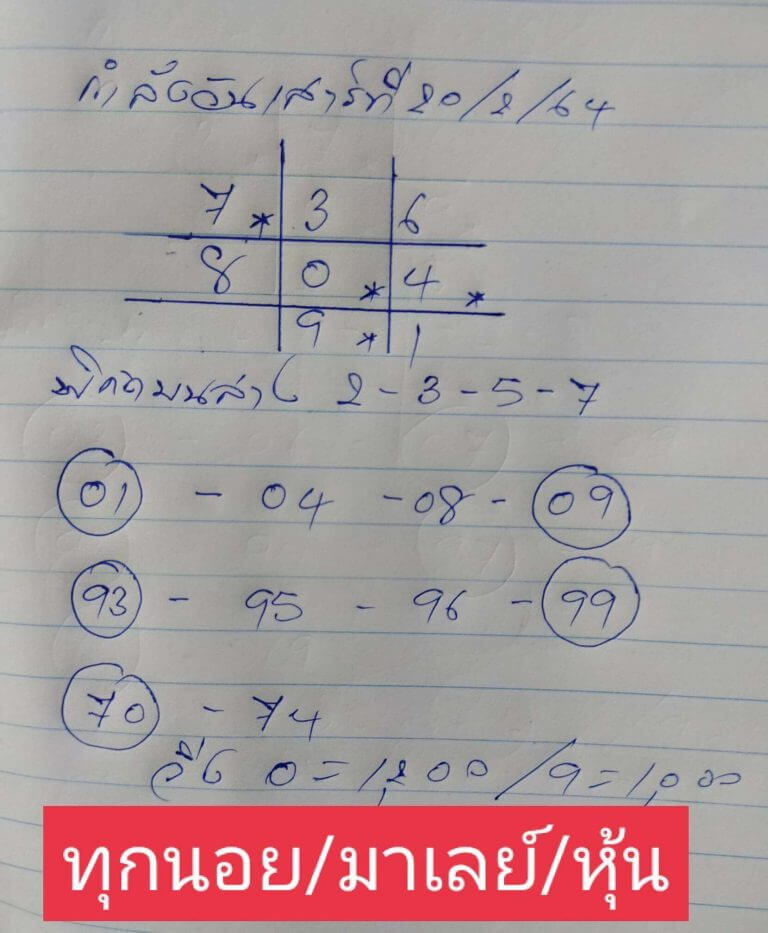 กำลังวันเสาร์ที่ 20/2/64
7* 3 6
8 0* 4*
9* 1
พิกัดบนล่าง 2-3-5-7
01 - 04 - 08 - 09
93 - 95 - 96 - 99
70 - 74
วิ่ง 0=1,200/9=1,000
ทุกนอย/มาเลย์/หุ้น